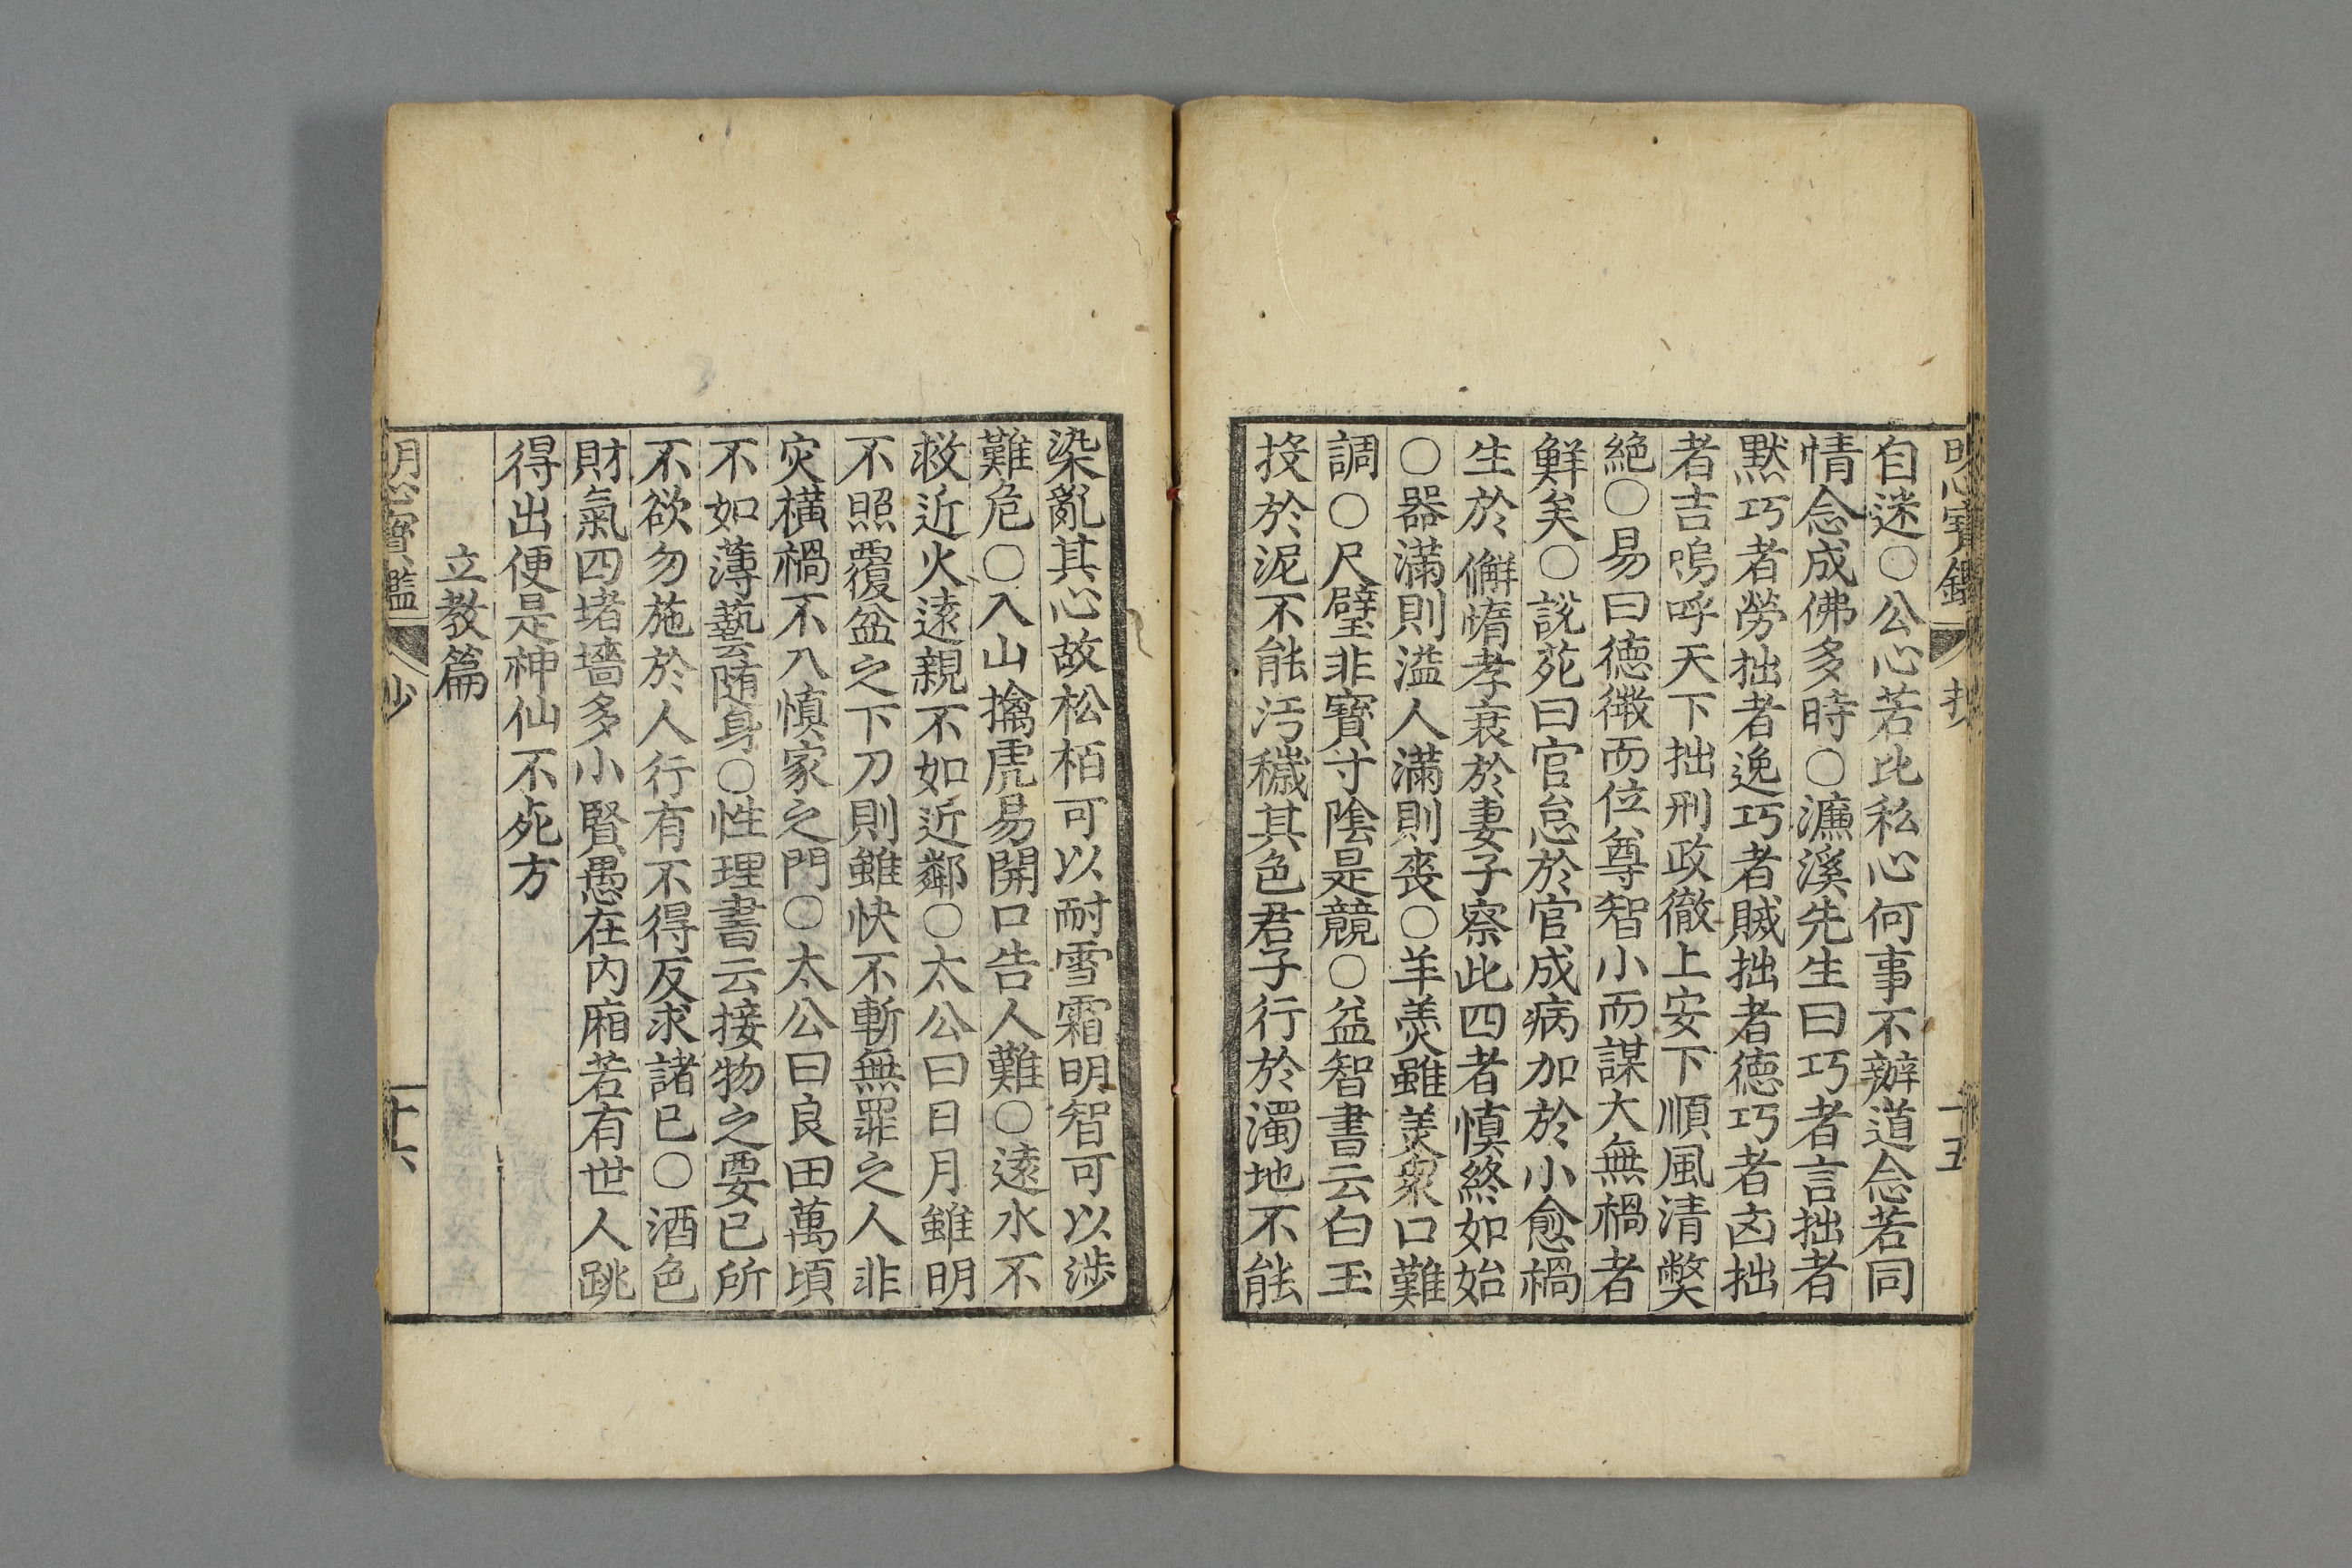 明心寶鑑 抄 十五
自迷○公心若比私心何事不辦道念若同
情念成佛多時○濂溪先生曰巧者言拙者
默巧者勞拙者逸巧者賊拙者德巧者凶拙
者吉嗚呼天下拙刑政徹上安下順風清弊
絶○易曰德微而位尊智小而謀大無禍者
鮮矣○說苑曰官怠於官成病加於小愈禍
生於懈惰孝衰於妻子察此四者慎終如始
○器滿則溢人滿則喪○羊羹雖美衆口難
調○尺璧非寶寸陰是競○益智書云白玉
投於泥不能汚穢其色君子行於濁地不能
染亂其心故松栢可以耐雪霜明智可以涉
難危○入山擒虎易開口告人難○遠水不
救近火遠親不如近鄰○太公曰日月雖明
不照覆盆之下刀則雖快不斬無罪之人非
灾橫禍不入慎家之門○太公曰良田萬頃
不如薄藝随身○性理書云接物之要已所
不欲勿施於人行有不得反求諸已○酒色
財氣四堵墻多小賢愚在内廂若有世人跳
得出便是神仙不死方
立教篇
明心寶鑑 抄 十六